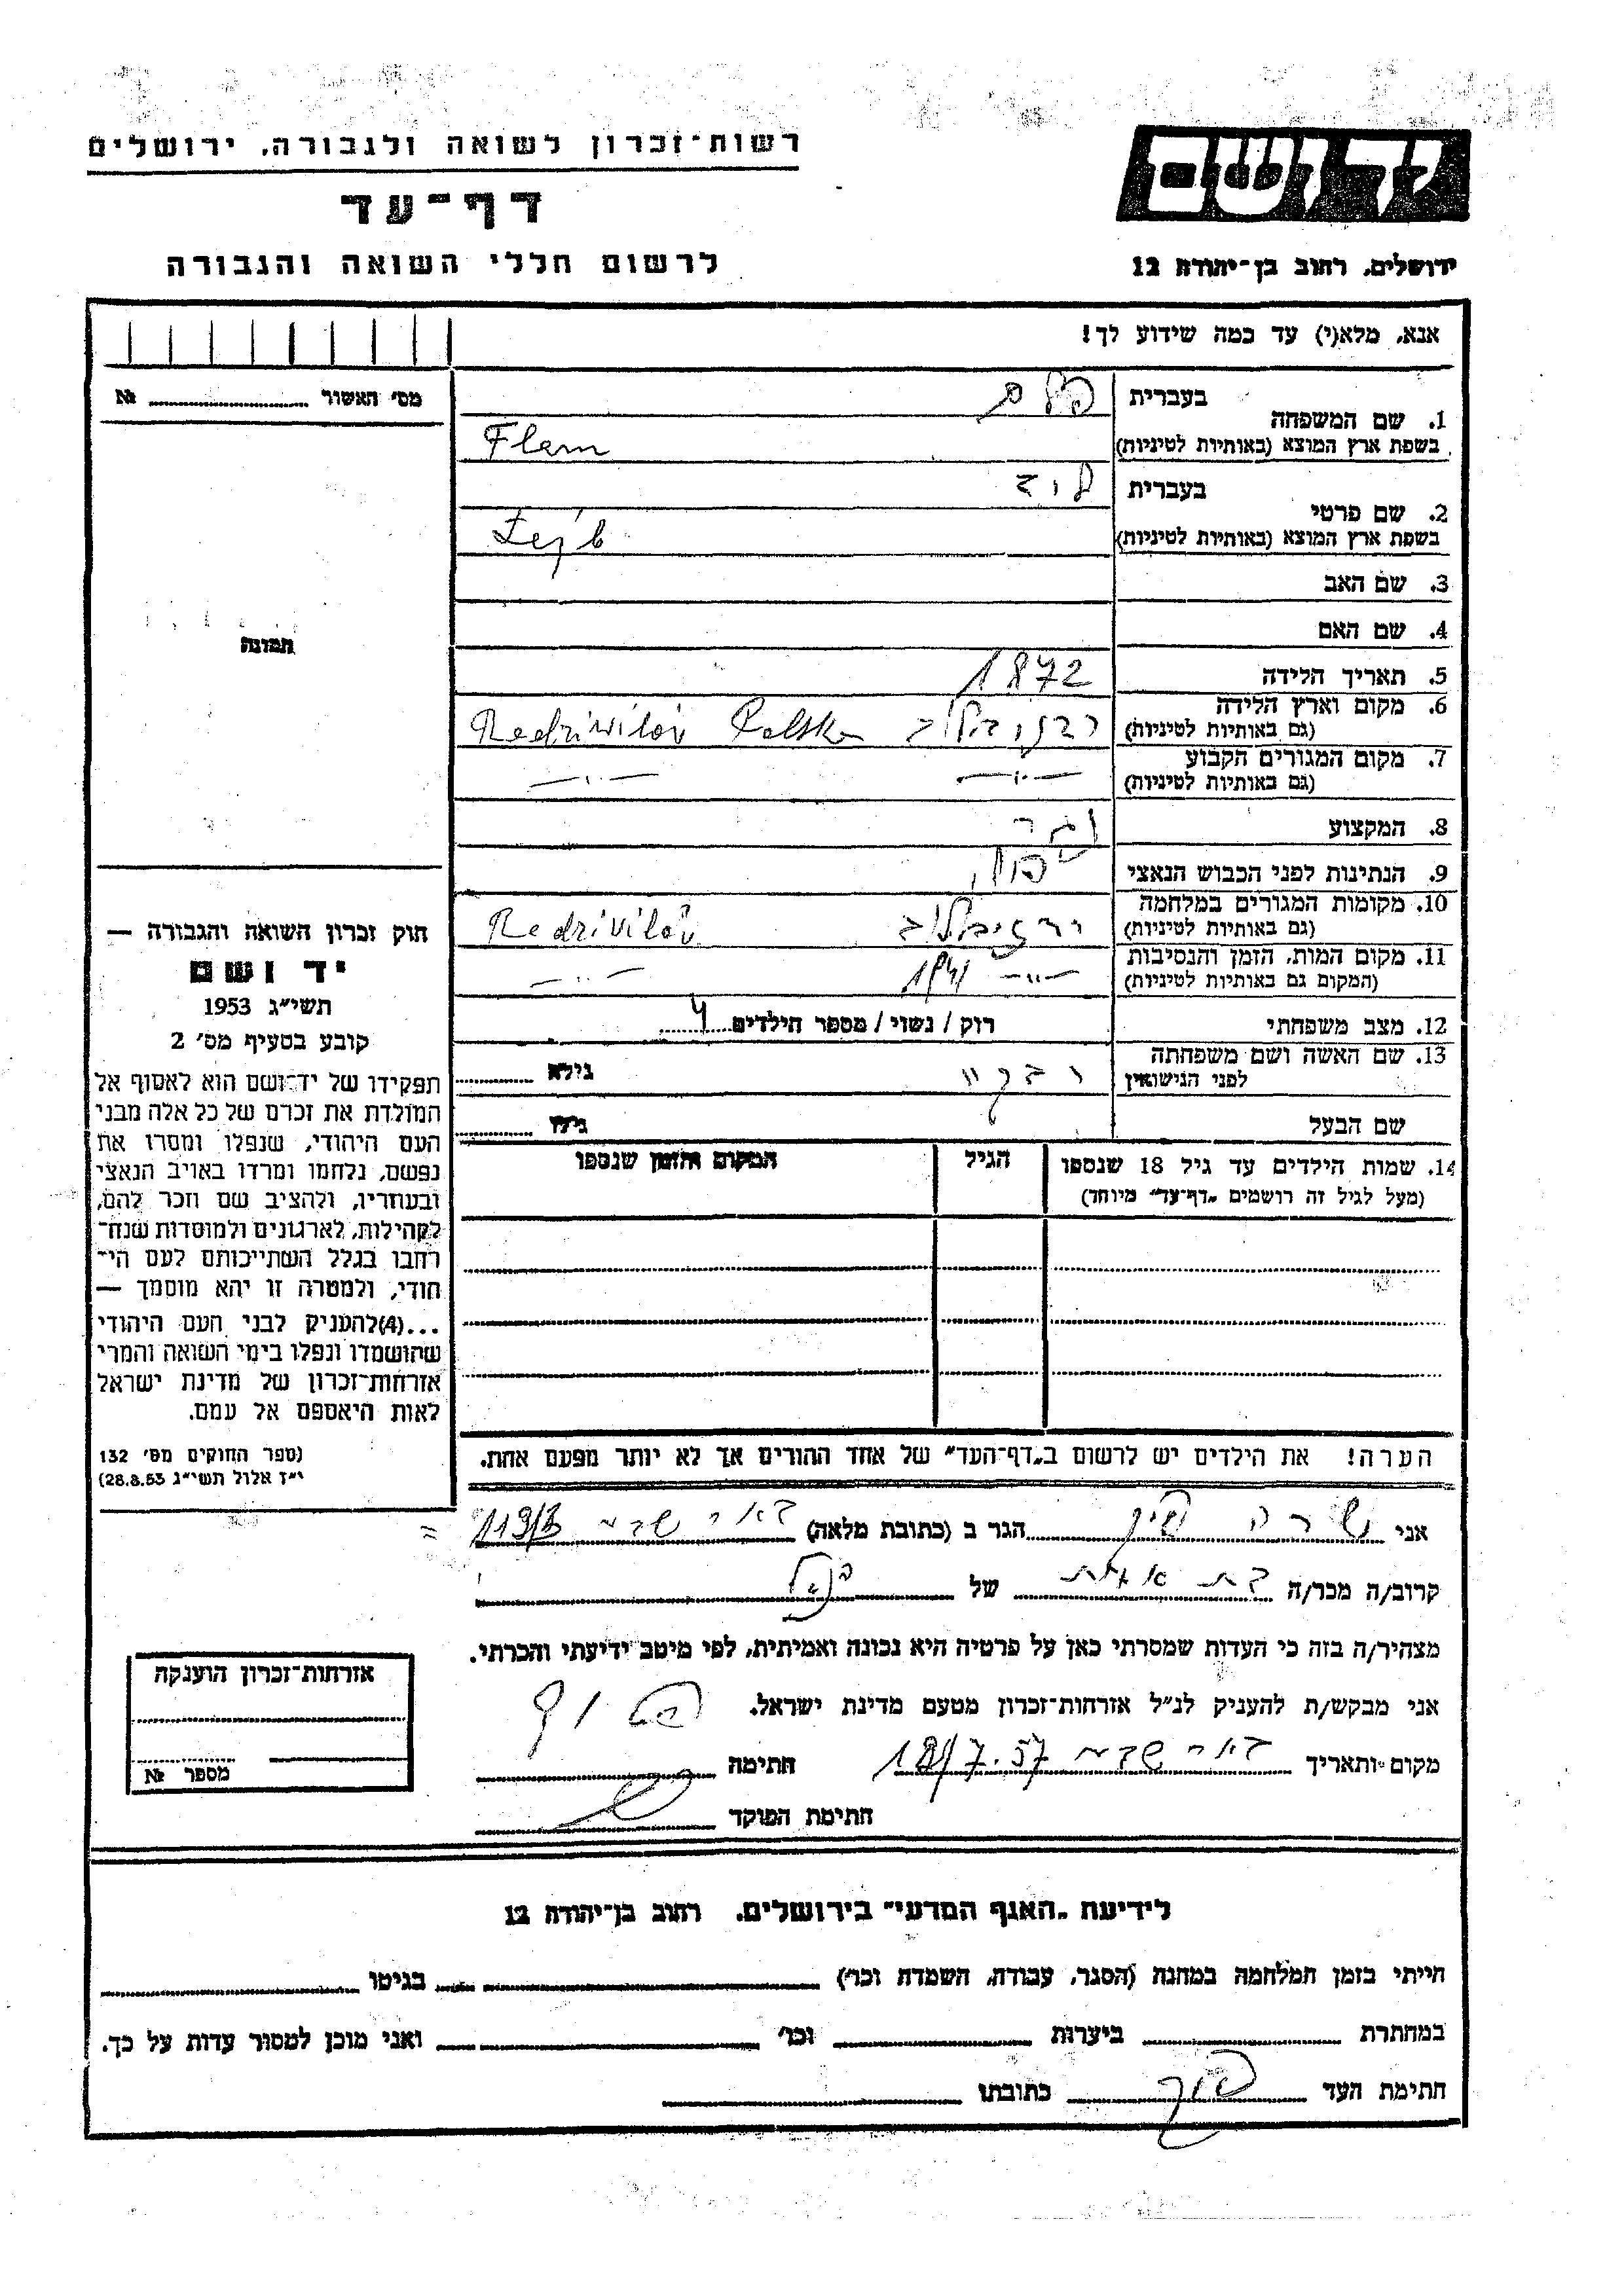 רשות-זכרון לשואה ולגבורה, ירושלים
דף-עד
לרשום חללי השואה והגבורה
יד ושם
ירושלים, רחוב בן-יהודה 12
אנא, מלא(י) עד כמה שידוע לך!
מס' האשור № 
תמונה
1. שם המשפחה בעברית פלם
בשפת ארץ המוצא (באותיות לטיניות) Flem
2. שם פרטי בעברית לוב
בשפת ארץ המוצא (באותיות לטיניות) Lejb
3. שם האב
4. שם האם
5. תאריך הלידה 1872
6. מקום וארץ הלידה
(גם באותיות לטיניות) Radzivilov Polska
7. מקום המגורים הקבוע
(גם באותיות לטיניות) —״— —״—
8. המקצוע
9. הנתינות לפני הכבוש הנאצי
10. מקומות המגורים במלחמה
(גם באותיות לטיניות) Radzivilov
11. מקום המות, הזמן והנסיבות
(המקום גם באותיות לטיניות) —״— 1941 —״—
12. מצב משפחתי רוק / נשוי / מספר הילדים 4
13. שם האשה ושם משפחתה
לפני הנישואין רבקה גילא
שם הבעל גילו
14. שמות הילדים עד גיל 18 שנספו הגיל המקום והזמן שנספו
(מעל לגיל זה רושמים „דף-עד" מיוחד)
הערה! את הילדים יש לרשום ב„דף-העד" של אחד ההורים אך לא יותר מפעם אחת.
חוק זכרון השואה והגבורה —
יד ושם
תשי"ג 1953
קובע בסעיף מס' 2
תפקידו של יד-ושם הוא לאסוף אל
המולדת את זכרם של כל אלה מבני
העם היהודי, שנפלו ומסרו את
נפשם, נלחמו ומרדו באויב הנאצי
ובעוזריו, ולהציב שם וזכר להם,
לקהילות, לארגונים ולמוסדות שנח-
רחבו בגלל השתייכותם לעם הי-
הודי, ולמטרה זו יהא מוסמך —
...(4)להעניק לבני העם היהודי
שהושמדו ונפלו בימי השואה והמרי
אזרחות-זכרון של מדינת ישראל
לאות היאספם אל עמם.
(ספר החוקים מס' 132
י"ד אלול תשי"ג 28.8.53)
אני שרה הגר ב (כתובת מלאה) באר שבע
קרוב/ה מכר/ה בת אחות של הנ"ל
מצהיר/ה בזה כי העדות שמסרתי כאן על פרטיה היא נכונה ואמיתית, לפי מיטב ידיעתי והכרתי.
אני מבקש/ת להעניק לנ"ל אזרחות-זכרון מטעם מדינת ישראל.
מקום ותאריך באר שבע חתימה
חתימת הפוקד
אזרחות-זכרון הוענקה
מספר №
לידיעת „האגף המדעי" בירושלים, רחוב בן-יהודה 12
הייתי בזמן המלחמה במחנה (הסגר, עבודה, השמדה וכו') בגיטו
במחתרת ביערות וכו' ואני מוכן למסור עדות על כך.
חתימת העד כתובתו